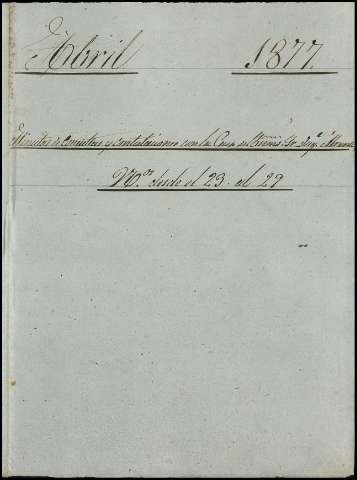 Abril 1877
Minutas de Consultas y contestaciones con la Casa del Excmo. Sr. Duq.e
N.os desde el 23 al 29